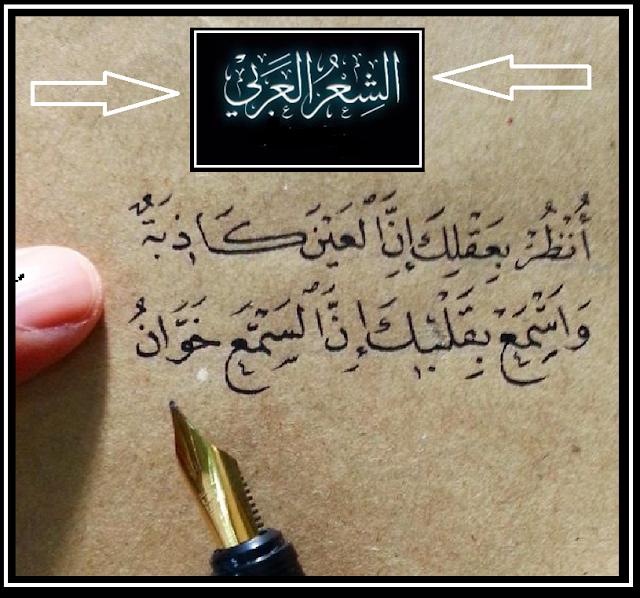 الشِعْرُ العَرَبي
أُنْظُرْ بِعَقْلِكَ إِنَّ الْعَيْنَ كَاذِبَةٌ
وَاسْمَعْ بِقَلْبِكَ إِنَّ السَّمْعَ خَوَّانُ